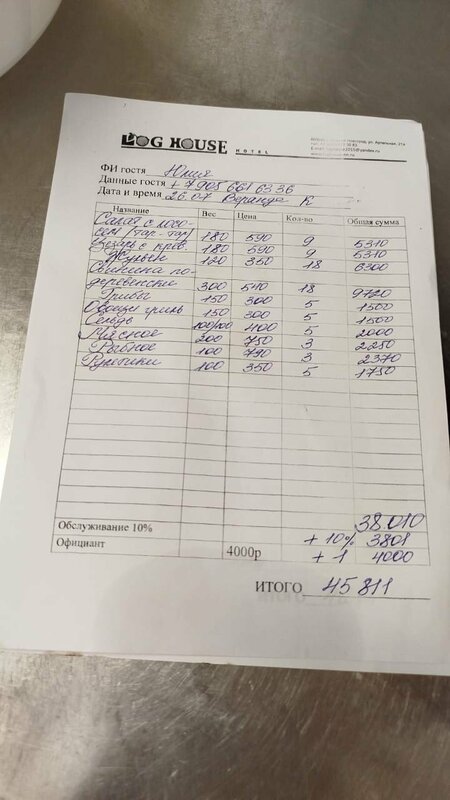 LOG HOUSE
HOTEL
ФИ гостя Юлия
Данные гостя +7 905 661 63 36
Дата и время 26.07 Веранда К
Название Вес Цена Кол-во Общая сумма
Салат с лосо-
сем (тар-тар) 180 590 9 5310
Цезарь с крев. 180 590 9 5310
Жульен 120 350 18 6300
Свинина по-
деревенски 300 540 18 9720
Грибы 150 300 5 1500
Овощи гриль 150 300 5 1500
Сельдь 100/100 400 5 2000
Мясное 200 750 3 2250
Рыбное 100 790 3 2370
Рулетики 100 350 5 1750
38010
Обслуживание 10% + 10% 3801
Официант 4000р + 1 4000
ИТОГО 45811